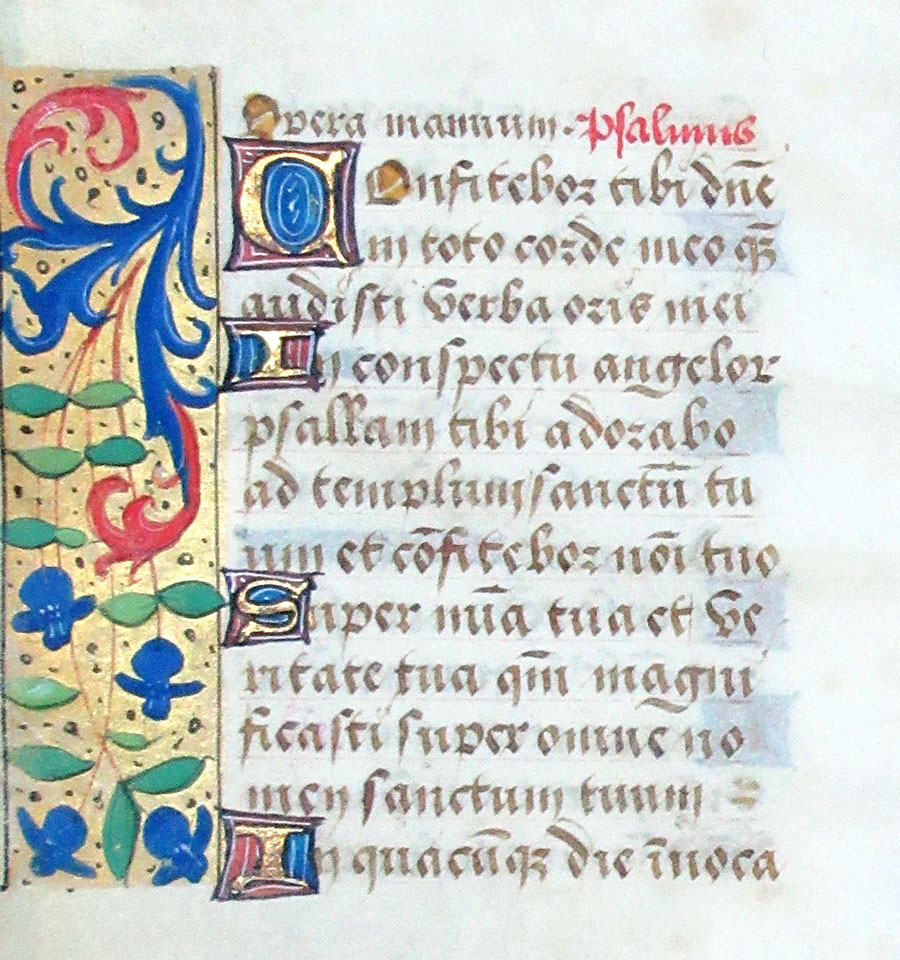 Opera manuum. Psalmus
COnfitebor tibi dn̄e
in toto corde meo qm̄
audisti verba oris mei
In conspectu angelor
psallam tibi adorabo
ad templum sanctū tu
um et cōfitebor nōi tuo
Super mīa tua et ve
ritate tua qm̄ magni
ficasti super omne no
men sanctum tuum
In quacūqꝫ die īuoca